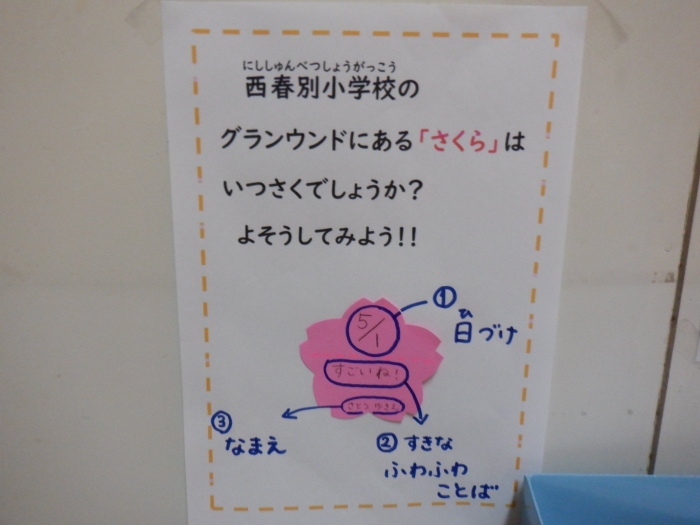 にししゅんべつしょうがっこう
西春別小学校の
グランウンドにある「さくら」は
いつさくでしょうか?
よそうしてみよう!!
① ひ
日づけ
5/1
すごいね!
さとう ゆきえ
③
なまえ
② すきな
ふわふわ
ことば